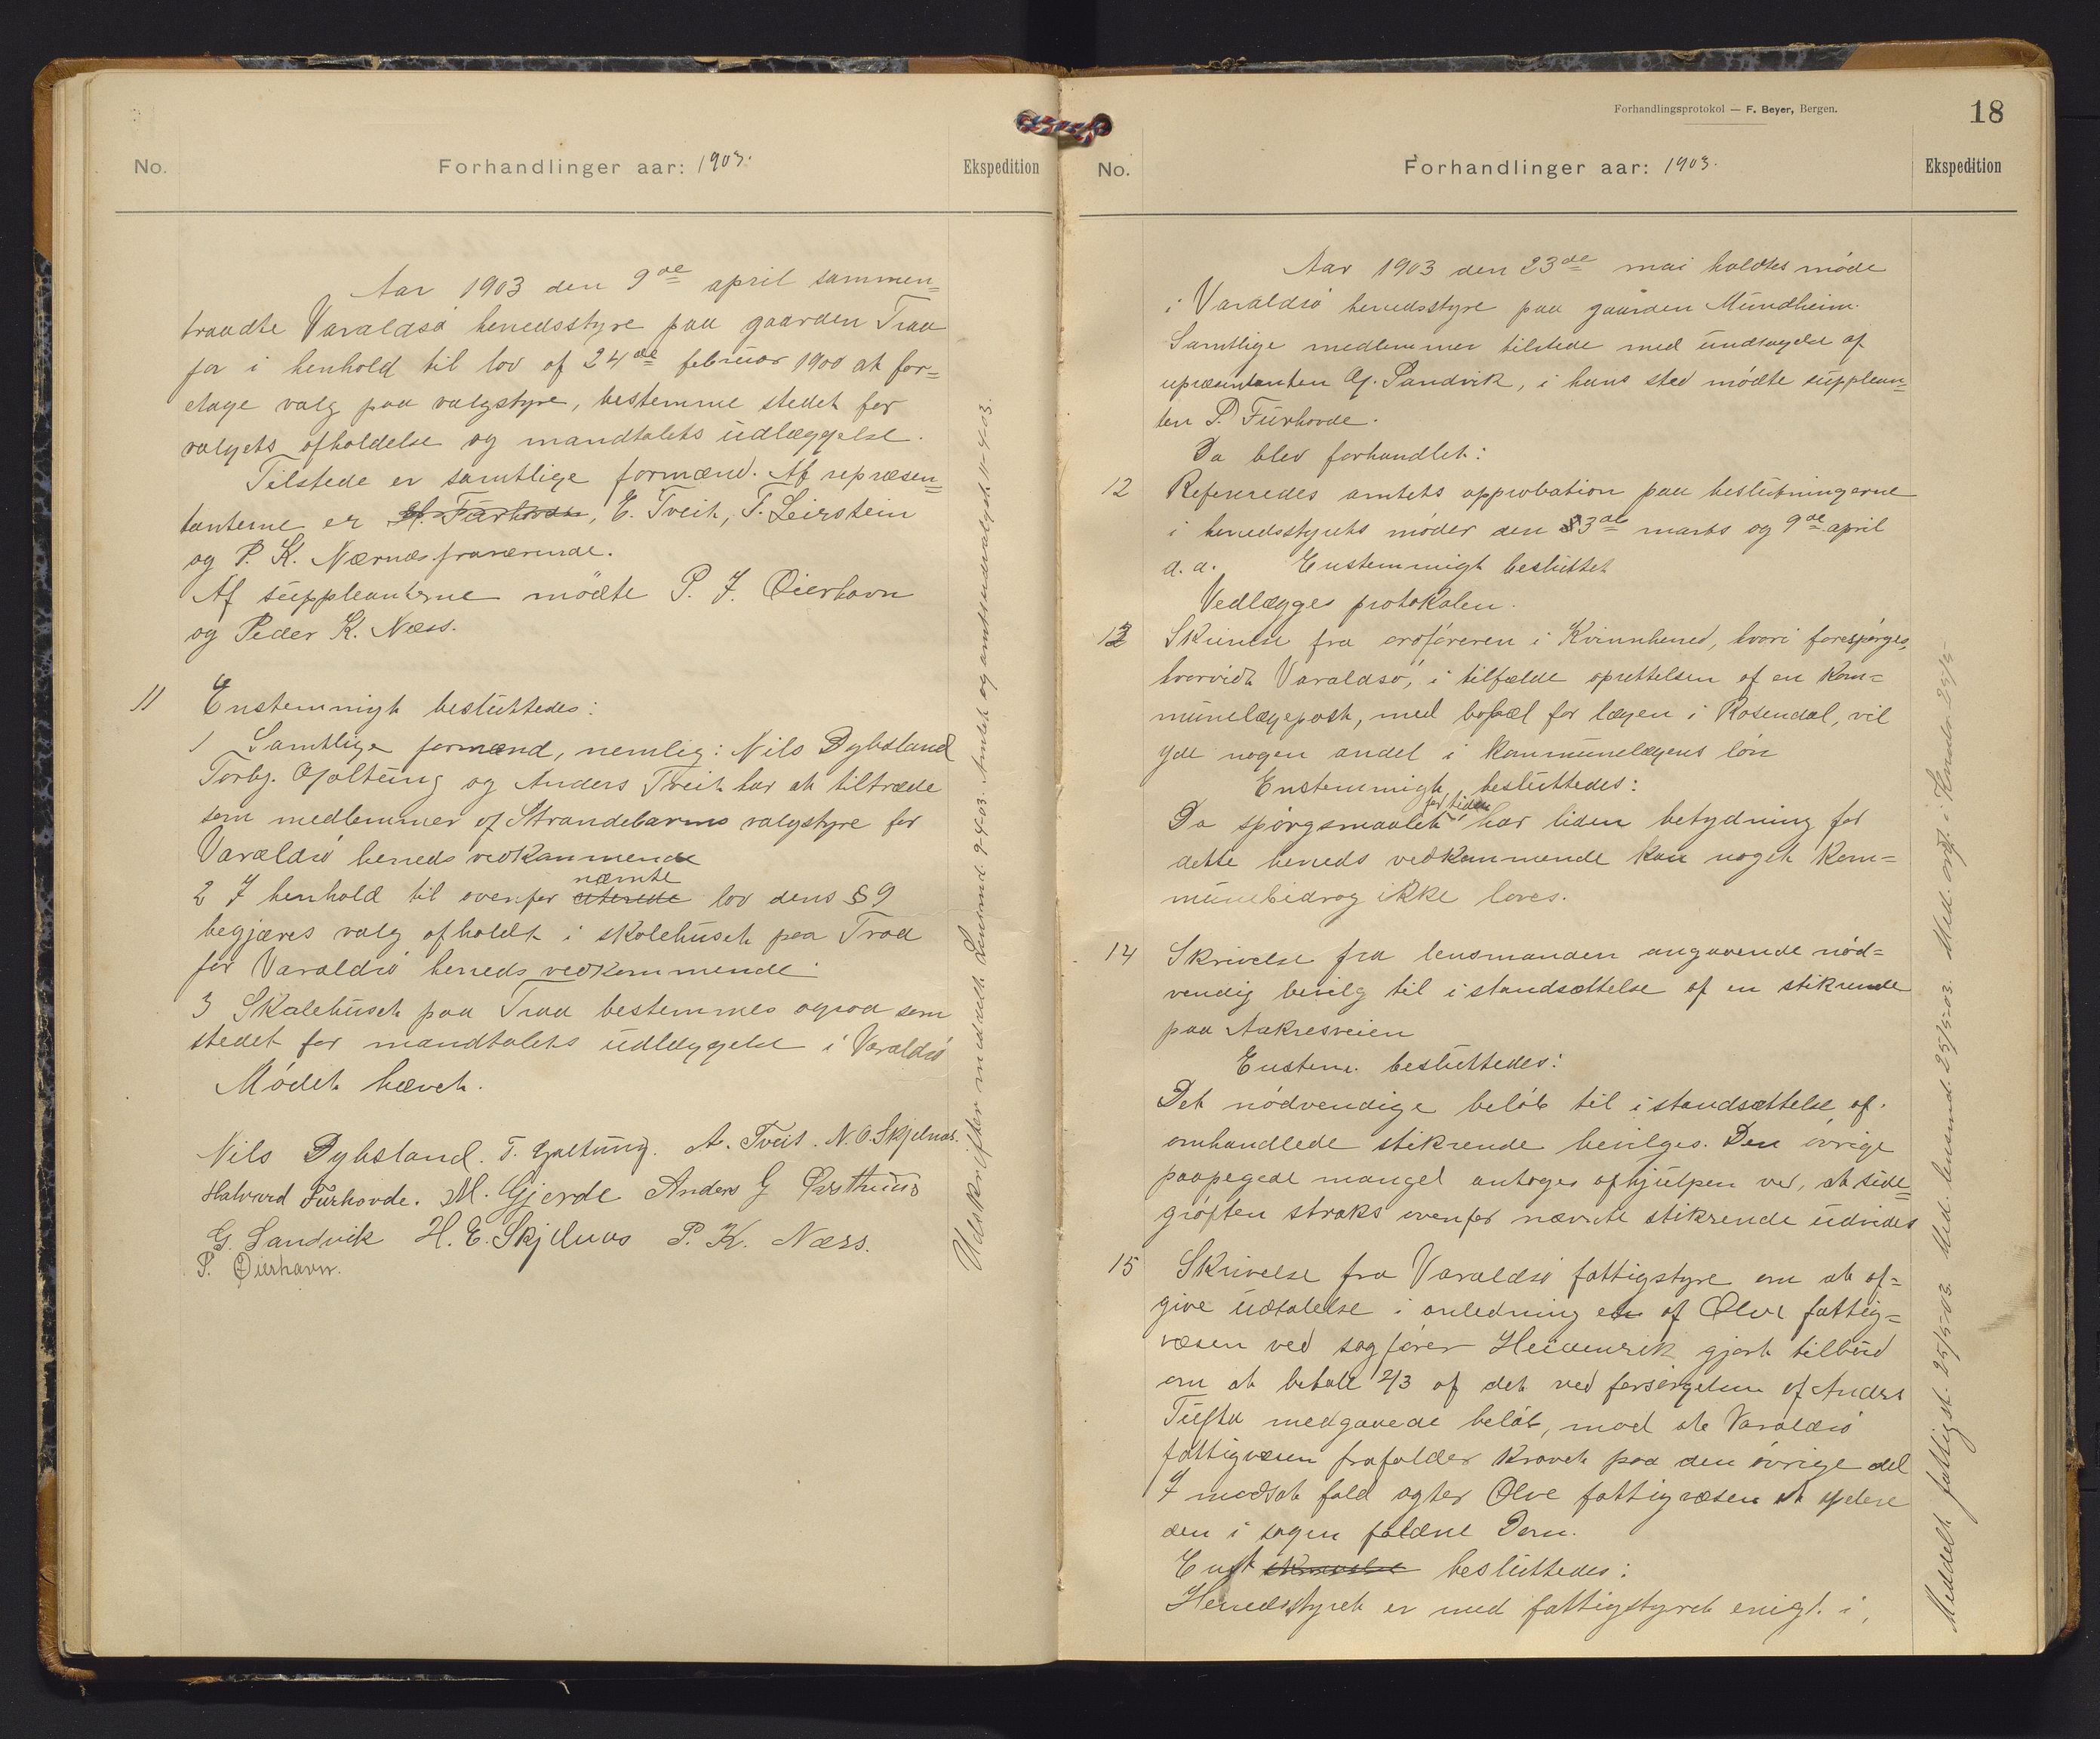 No.
Forhandlinger aar: 1903.
Ekspedition
Aar 1903 den 9de april sammen=
traadte Varaldsö herredsstyre paa gaarden Traa
for i henhold til lov af 24de februar 1900 at for=
etage valg paa valgstyre, bestemme stedet for
valgets afholdelse og mandtalets udlæggelse.
Tilstede er samtlige formænd. Af repræsen=
tanterne er H. Furhovde, E. Tveit, T. Leirstein
og P. K. Nærnæs fraværende.
Af suppleanterne mödte P. J. Öierhavn
og Peder K. Næss.
11 Enstemmigt besluttedes:
1 Samtlige formænd, nemlig: Nils Dybsland
Torbj. Gjaltung og Anders Tveit har at tiltræde
som medlemmer af Strandebarms valgstyre for
Varaldsö herreds vedkommende
nævnte
2 I henhold til ovenfor citerede lov dens § 9
begjæres valg afholdt i skolehuset paa Traa
for Varaldsö herreds vedkommende.
3 Skolehuset paa Traa bestemmes ogsaa som
stedet for mandtalets udlæggelse i Varaldsö
Mödet hævet.
Nils Dybsland. T. Galtung. A. Tveit. N. O. Skjelnæs.
Halvard Furhovde. M. Gjerde Anders G Östhuus
G. Sandvik H. E. Skjelnæs P. K. Næss.
P. Öierhavn.
Udskrifter meddelt Lensmd. 9-4-03. Amtet og amtsudvalget 11-4-03.
Forhandlingsprotokol — F. Beyer, Bergen.
18
No.
Forhandlinger aar: 1903.
Ekspedition
Aar 1903 den 23de mai holdtes möde
i Varaldsö herredsstyre paa gaarden Mundheim.
Samtlige medlemmer tilstede med undtagelse af
repræsentanten G. Sandvik, i hans sted mödte supplean=
ten P. Furhovde.
Da blev forhandlet:
12 Refereredes amtets approbation paa beslutningerne
i herredsstyrets möder den 3de marts og 9de april
d. a. Enstemmigt besluttet
Vedlægges protokolen.
13 Skrivelse fra ordföreren i Kvinnherred, hvori forespörges,
hvorvidt Varaldsö, i tilfælde oprettelsen af en kom=
munelægepost, med bopæl for lægen i Rosendal, vil
yde nogen andel i kommunelægens lön
Enstemmigt besluttedes:
for tiden
Da spörgsmaalet har liden betydning for
dette herreds vedkommende kan noget kom=
munebidrag ikke loves.
14 Skrivelse fra lensmanden angaaende nöd=
vendig bevilg til istandsættelse af en stikrende
paa Aakresveien
Enstem. besluttedes:
Det nödvendige belöb til istandsættelse af
omhandlede stikrende bevilges. Den övrige
paapegede mangel antages afhjulpen ved, at side=
gröften straks ovenfor nævnte stikrende udvides
15 Skrivelse fra Varaldsö fattigstyre om at af=
give udtalelse i anledning et af Ölve fattig=
væsen ved sagförer gjort tilbud
om at betale 2/3 af det ved forsörgelsen af Anders
Tufta medgaaede belöb, mod at Varaldsö
fattigvæsen frafalder kravet paa den övrige del
I modsat fald agter Ölve fattigvæsen at apelere
den i sagen faldne Dom.
Enst skrivelse besluttedes:
Herredsstyret er med fattigstyret enigt i,
Meddelt fattigst. 25/5-03. Med. lensmd. 25/5-03. Med. ordf. i Kvinnhr. 25/5